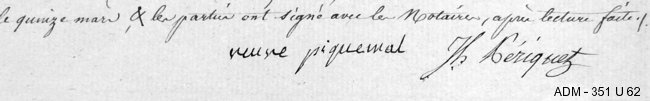 le quinze mars, & les parties ont signé avec les Notaires, après lecture faite./.
veuve piquemal Th Périquet
ADM - 351 U 62